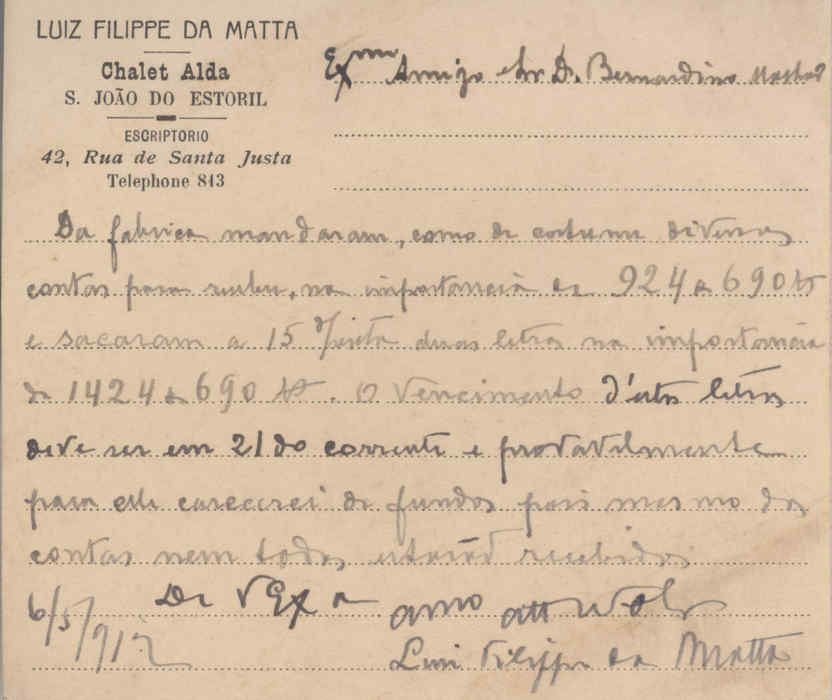 LUIZ FILIPPE DA MATTA
Chalet Alda
S. JOÃO DO ESTORIL
ESCRIPTORIO
42, Rua de Santa Justa
Telephone 813
Exmo Amigo Snr D. Bernardino Machado
Da fabrica mandaram, como de costume diversas
contas para receber, na importancia de 924$690
e sacaram a 15 d/vista duas letras na importancia
de 1424$690. O vencimento d'estas letras
deve ser em 21 do corrente e provavelmente
para elle carecerei de fundos pois mesmo das
contas nem todas estarão recebidas
De V Exa amo att
6/5/912
Luiz Filippe da Matta